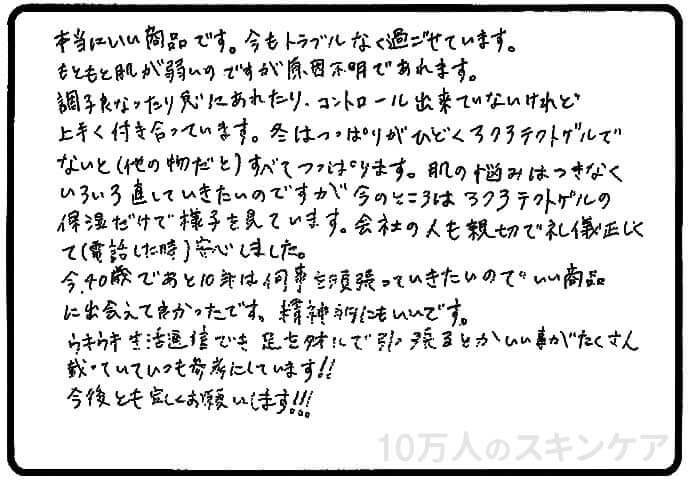 本当にいい商品です。今もトラブルなく過ごせています。
もともと肌が弱いのですが原因不明であれます。
調子良なったり急にあれたり、コントロール出来ていないけれど
上手く付き合っています。冬はつっぱりがひどくろクろテクトゲルで
ないと(他の物だと)すべてつっぱります。肌の悩みはつきなく
いろいろ直していきたいのですが今のところはろクろテクトゲルの
保湿だけで様子を見ています。会社の人も親切で礼儀正しく
て(電話した時)安心しました。
今、40歳であと10年は何事も頑張っていきたいのでいい商品
に出会えて良かったです。精神的にもいいです。
ウキウキ生活通信でき 足をタオルで引っ張るとかいい事がたくさん
載っていていつも参考にしています!!
今後とも宜しくお願いします!!!
10万人のスキンケア